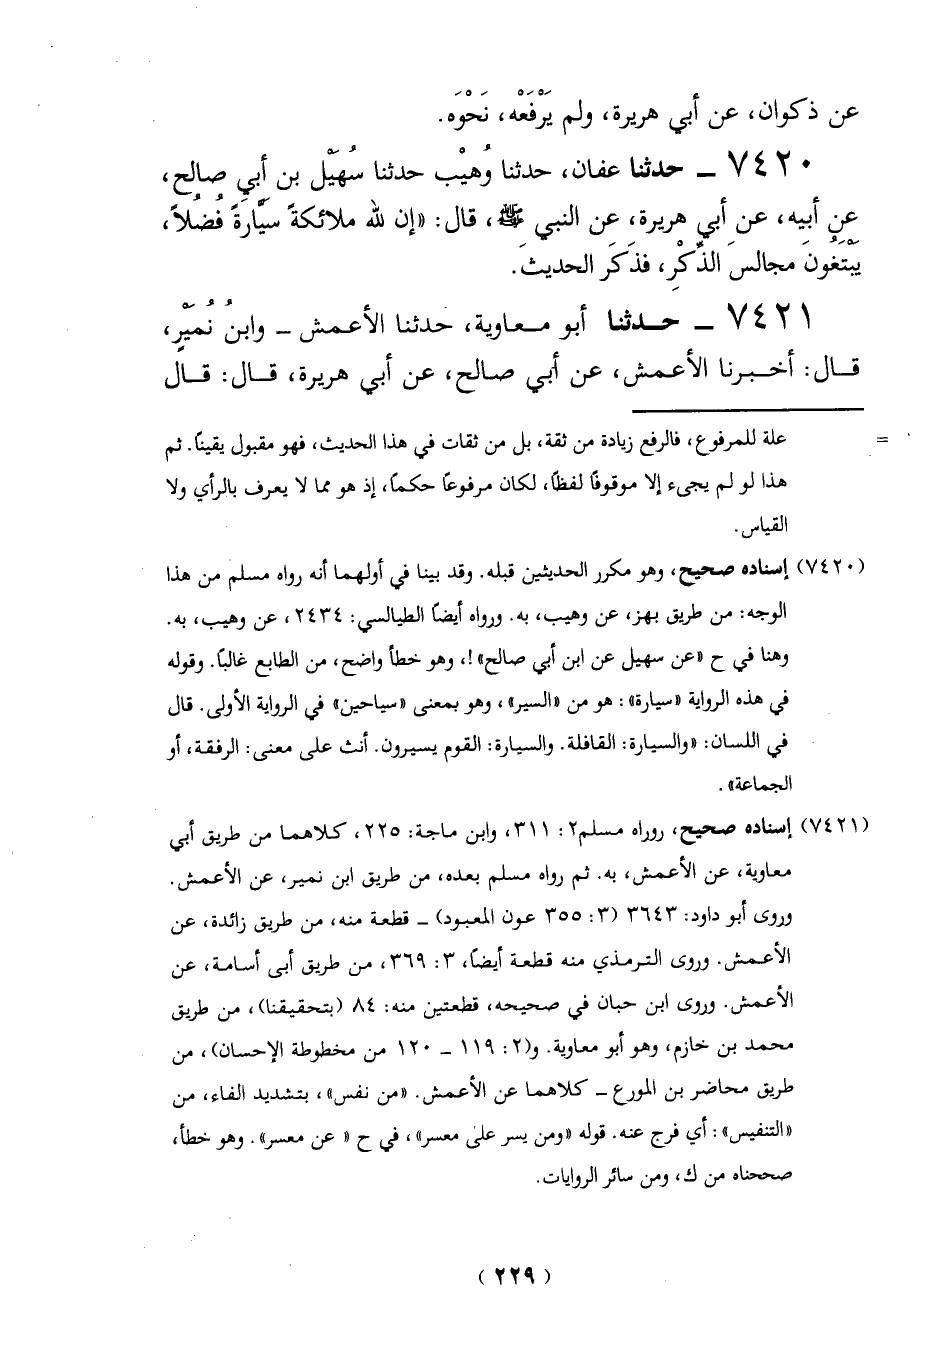 عن ذكوان، عن أبي هريرة، ولم يَرْفَعْه، نَحْوَه.
٧٤٢٠ ــ حدثنا عفان، حدثنا وُهَيْب حدثنا سُهَيْل بن أبي صالح،
عن أبيه، عن أبي هريرة، عن النبي ﷺ، قال: «إن لله ملائكةً سَيَّارَةً فُضُلاً،
يَبْتَغُونَ مجالسَ الذِّكْرِ، فذَكَر الحديثَ.
٧٤٢١ ــ حـدثنا أبو مـعاوية، حدثنا الأعـمش ــ وابنُ نُمَيْرٍ،
قـال: أخـبرنا الأعـمش، عن أبي صالح، عن أبي هريرة، قـال: قـال
= علة للمرفوع، فالرفع زيادة من ثقة، بل من ثقات في هذا الحديث، فهو مقبول يقينًا. ثم
هذا لو لم يجىء إلا موقوفًا لفظًا، لكان مرفوعًا حكمًا، إذ هو مما لا يعرف بالرأي ولا
القياس.
(٧٤٢٠) إسناده صحيح، وهو مكرر الحديثين قبله. وقد بينا في أولهما أنه رواه مسلم من هذا
الوجه: من طريق بهز، عن وهيب، به. ورواه أيضًا الطيالسي: ٢٤٣٤، عن وهيب، به.
وهنا في ح «عن سهيل عن ابن أبي صالح»!، وهو خطأ واضح، من الطابع غالبًا. وقوله
في هذه الرواية «سيارة»: هو من «السير»، وهو بمعنى «سياحين» في الرواية الأولى. قال
في اللسان: «والسيارة: القافلة. والسيارة: القوم يسيرون. أنث على معنى: الرفقة، أو
الجماعة».
(٧٤٢١) إسناده صحيح، روراه مسلم٢: ٣١١، وابن ماجة: ٢٢٥، كلاهما من طريق أبي
معاوية، عن الأعمش، به. ثم رواه مسلم بعده، من طريق ابن نمير، عن الأعمش.
وروى أبو داود: ٣٦٤٣ (٣: ٣٥٥ عون المعبود) ــ قطعة منه، من طريق زائدة، عن
الأعـمش. وروى الترمذي منه قطعة أيضًا، ٣: ٣٦٩، من طريق أبى أسامة، عن
الأعمش. وروى ابن حبان في صحيحه، قطعتين منه: ٨٤ (بتحقيقنا)، من طريق
محمد بن خازم، وهو أبو معاوية. و(٢: ١١٩ ــ ١٢٠ من مخطوطة الإحسان)، من
طريق محاضر بن المورع ــ كلاهما عن الأعمش. «من نفس»، بتشديد الفاء، من
«التنفيس»: أي فرج عنه. قوله «ومن يسر على معسر»، في ح « عن معسر». وهو خطأ،
صححناه من ك، ومن سائر الروايات.
(٢٢٩)